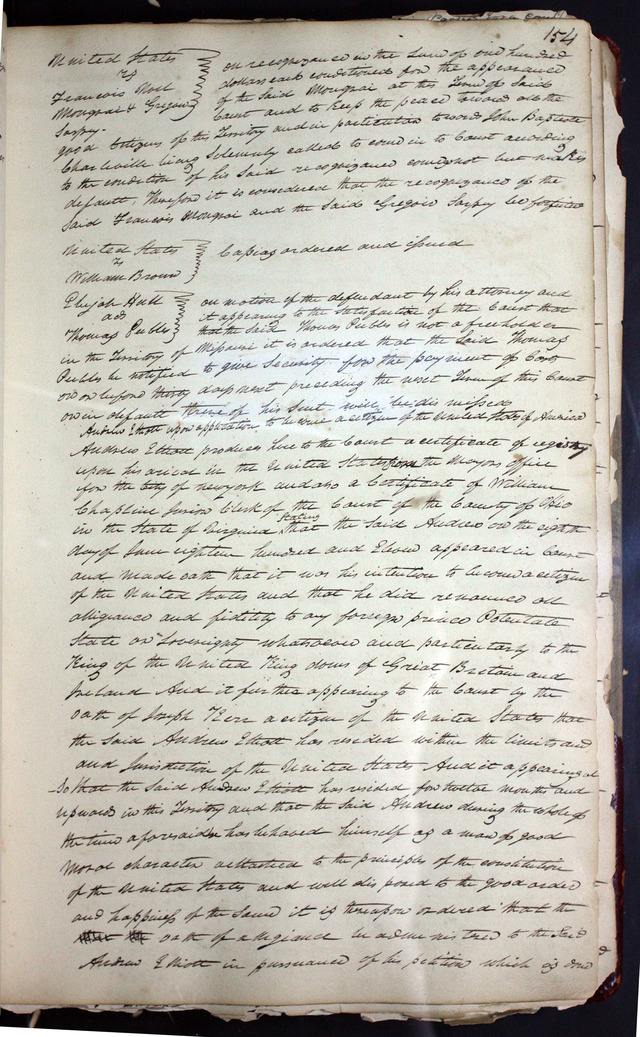 154
United States
vs
Francois Noel
Mongrai & Gregoire
Sarpy.
on recognizance in the sum of one hundred
dollars each conditioned for the appearance
of the said Mongrai at this Term of said
Court and to keep the peace toward all the
good Citizens of this Territory and in particular toward John Baptiste
Charleville being solemnly called to come in to Court according
to the condition of his said recognizance comes not but makes
default. Therefore it is considered that the recognizance of the
said Francois Mongrai and the said Gregoire Sarpy be forfeited
United States
vs
William Brown
Capias ordered and issued
Elijah Hull
ads
Thomas Peebles
on motion of the defendant by his attorney and
it appearing to the satisfaction of the Court that
that the said Thomas Peebles is not a freeholder
in the Territory of Missouri it is ordered that the said Thomas
Peebles be notified to give security for the payment of Cost
on or before thirty days next preceding the next Term of this Court
or in default thereof his suit will be dismissed
Andrew Elliott upon application to become a citizen of the United States of America
Andrew Elliott produces here to the Court a certificate of registry
upon his arival in the United States from the Mayors office
for the City of newyork and also a Certificate of William
Chapline Junior Clerk of the Court of the County of Ohio
in the State of Virginia stating that the said Andrew on the eighth
day of June eighteen hundred and Eleven appeared in Court
and made oath that it was his intention to become a citizen
of the United States and that he did renounce all
allegiance and fidelity to any foreign prince Potentate
State or Sovereignty whatsoever and particularly to the
King of the United Kingdoms of Great Britain and
Ireland And it further appearing to the Court by the
oath of Joseph Kerr a citizen of the United States that
the said Andrew Elliott has resided within the limits and
and Jurisdiction of the United States And it appearing al
so that the said Andrew Elliott has resided for twelve months and
upward in this Territory and that the said Andrew during the whole of
the time aforesaid has behaved himself as a man of good
moral character attached to the principles of the constitution
of the United States and well disposed to the good order
and happiness of the same it is thereupon ordered that the
oath of allegiance be administered to the said
Andrew Elliott in pursuance of his petition which is done